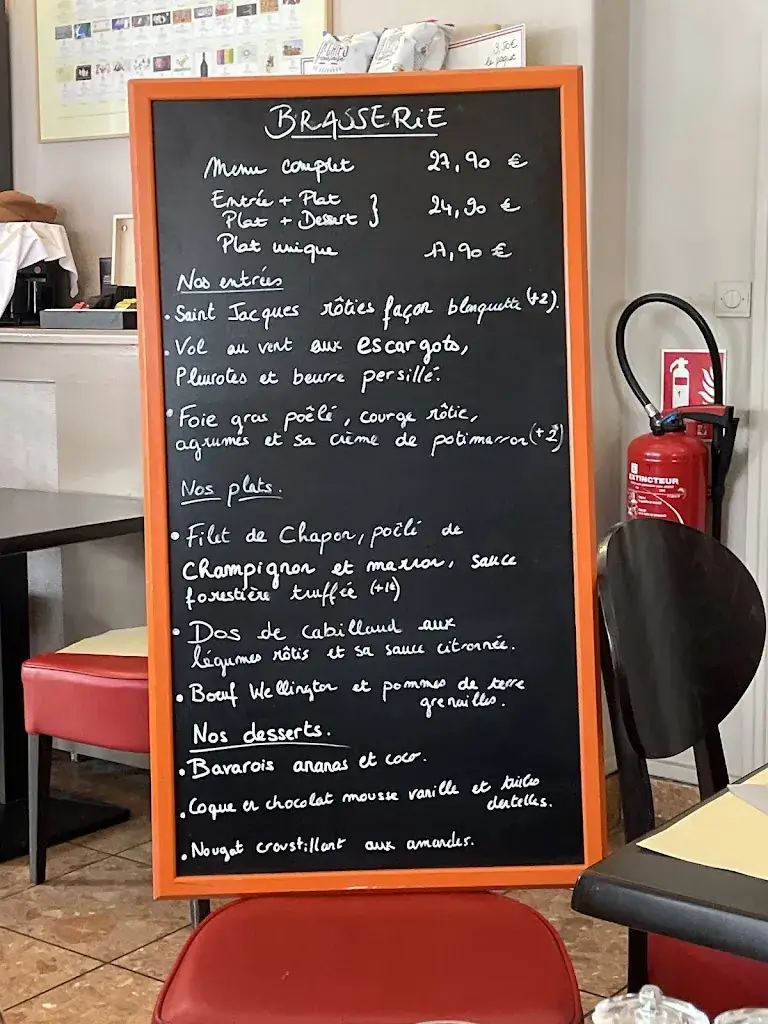 3,50€
le paquet
BRASSERIE
Menu complet 27,90 €
Entrée + Plat
Plat + Dessert } 24,90 €
Plat unique 17,90 €
Nos entrées
. Saint Jacques rôties façon blanquette (+2).
. Vol au vent aux escargots,
Pleurotes et beurre persillé.
• Foie gras poêlé, courge rôtie,
agrumes et sa crème de potimarron (+2)
Nos plats.
• Filet de Chapon, poêlé de
champignon et marron, sauce
forestière truffée
• Dos de cabillaud aux
légumes rôtis et sa sauce citronnée.
• Bœuf Wellington et pommes de terre
grenailles.
Nos desserts.
• Bavarois ananas et coco.
• Coque en chocolat mousse vanille et tuiles
dentelles.
• Nougat croustillant aux amandes.
EXTINCTEUR